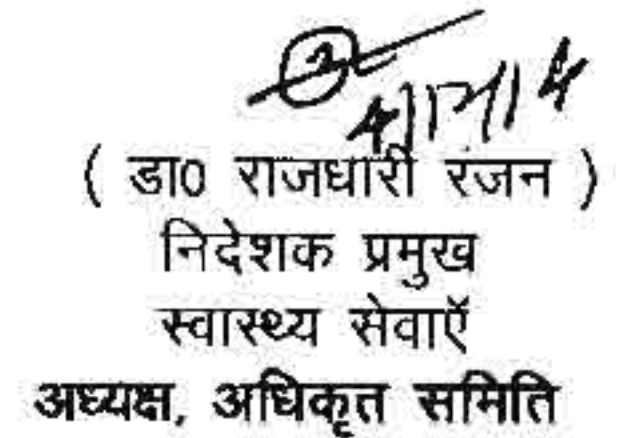 ( डा0 राजधारी रंजन )
निदेशक प्रमुख
स्वास्थ्य सेवाऍ
अध्यक्ष, अधिकृत समिति